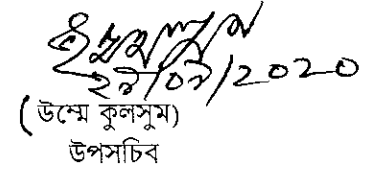 ২৯/০৯/2020
(উম্মে কুলসুম)
উপসচিব